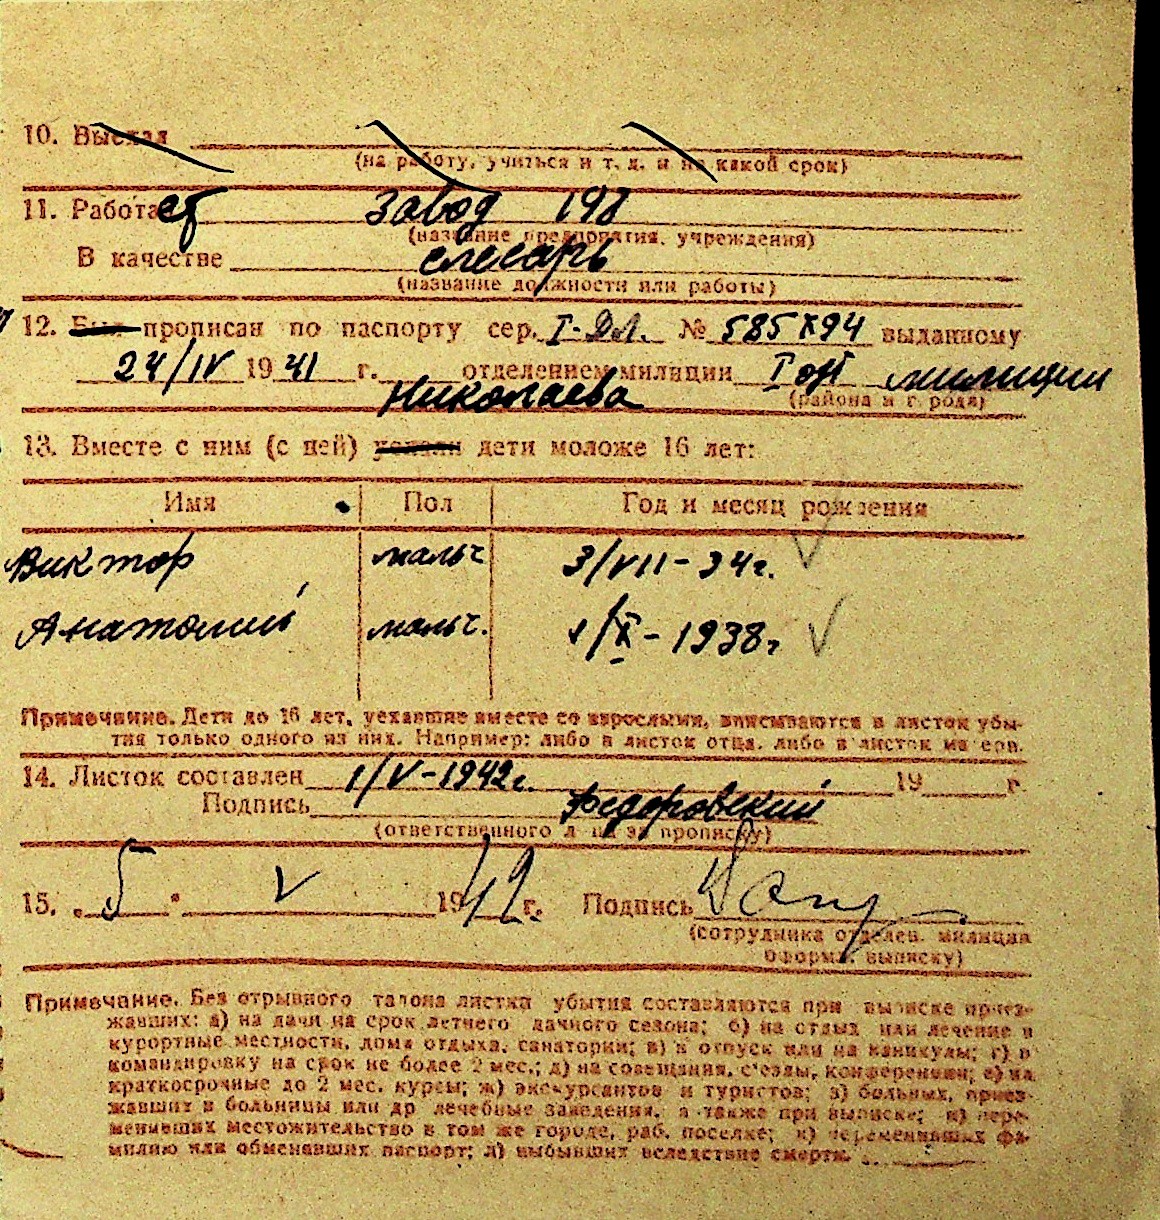 10. Выехал
(на работу, учиться и т. д. и на какой срок)
11. Работает завод 198
(название предприятия, учреждения)
В качестве слесарь
(название должности или работы)
12. Был прописан по паспорту сер. I-ДЛ. № 585794 выданному
24/IV 19 41 г. отделением милиции I гор милиции
Николаева (района и города)
13. Вместе с ним (с ней) уехали дети моложе 16 лет:
Имя Пол Год и месяц рождения
Виктор мальч 3/VII-34г.
Анатолий мальч. 1/X-1938г
Примечание. Дети до 16 лет, уехавшие вместе со взрослыми, вписываются в листок убы-
тия только одного из них. Например: либо в листок отца, либо в листок матери.
14. Листок составлен 1/V-1942г. 19 г.
Подпись Федоровский
(ответственного лица за прописку)
15. „5" V 1942 г. Подпись
(сотрудника отделен. милиции
оформ. выписку)
Примечание. Без отрывного талона листки убытия составляются при выписке приез-
жавших: а) на дачи на срок летнего дачного сезона; б) на отдых или лечение в
курортные местности, дома отдыха, санатории; в) в отпуск или на каникулы; г) в
командировку на срок не более 2 мес.; д) на совещания, съезды, конференции; е) на
краткосрочные до 2 мес. курсы; ж) экскурсантов и туристов; з) больных, приез-
жавших в больницы или др лечебные заведения, а также при выписке; и) пере-
менивших местожительство в том же городе, раб. поселке; к) переменивших фа-
милию или обменявших паспорт; л) выбывших вследствие смерти.